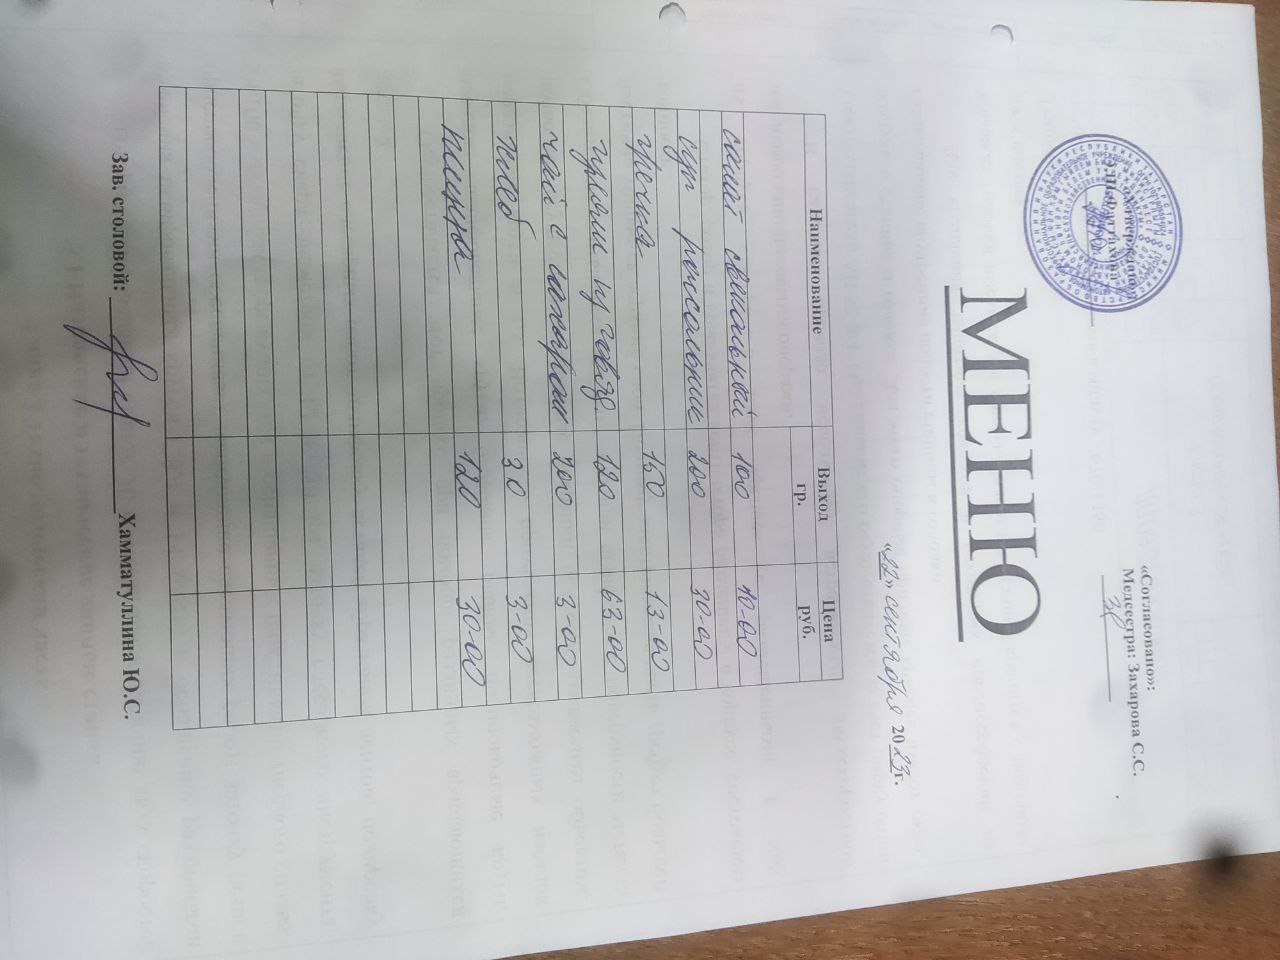 «Утверждаю»
«Согласовано»:
Медсестра: Захарова С.С.
МЕНЮ
«22» сентября 2023г.
Наименование Выход гр. Цена руб.
салат свекольный 100 10-00
суп рыбный 200 30-00
гречка 150 13-00
гуляш из говяд. 120 63-00
чай с сахаром 200 3-00
хлеб 30 3-00
пицца 120 30-00
Зав. столовой: Хамматуллина Ю.С.